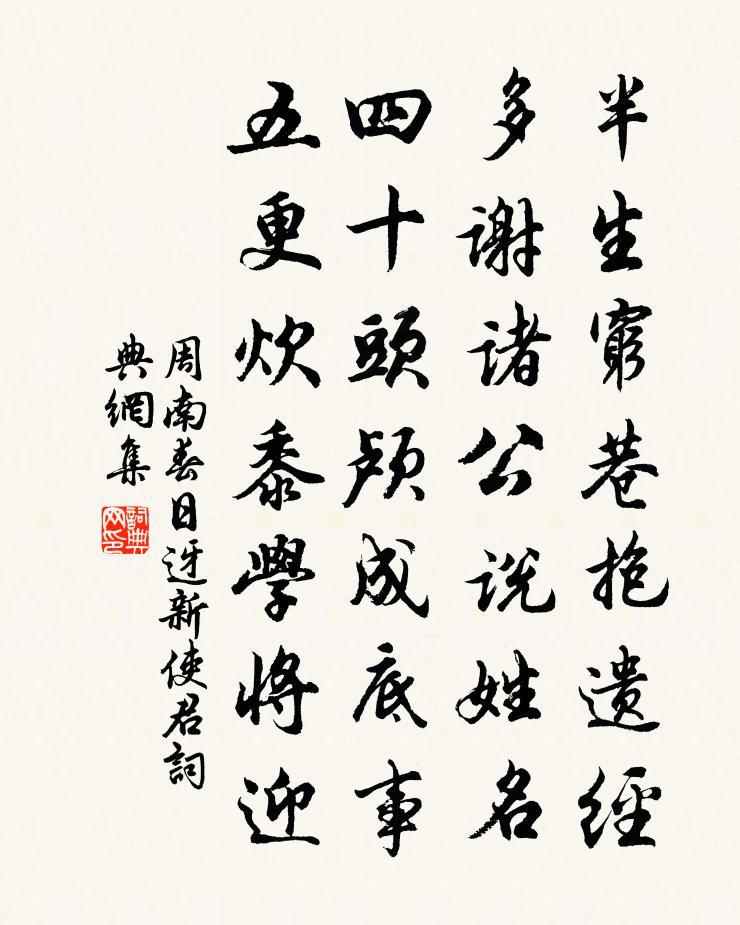 半生窮巷抱遺經
多謝諸公說姓名
四十頭顱成底事
五更炊黍學將迎
周南春日迓新使君詞
典網集
詞典
网印